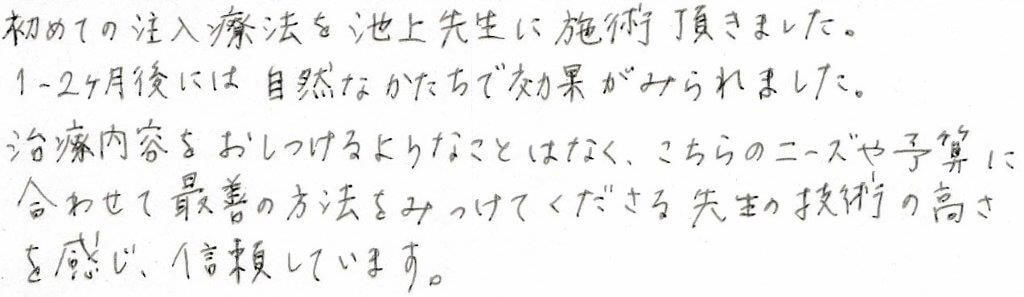 初めての注入療法を池上先生に施術頂きました。
1-2ヶ月後には自然なかたちで効果がみられました。
治療内容をおしつけるようなことはなく、こちらのニーズや予算に
合わせて最善の方法をみつけてくださる先生の技術の高さ
を感じ、信頼しています。